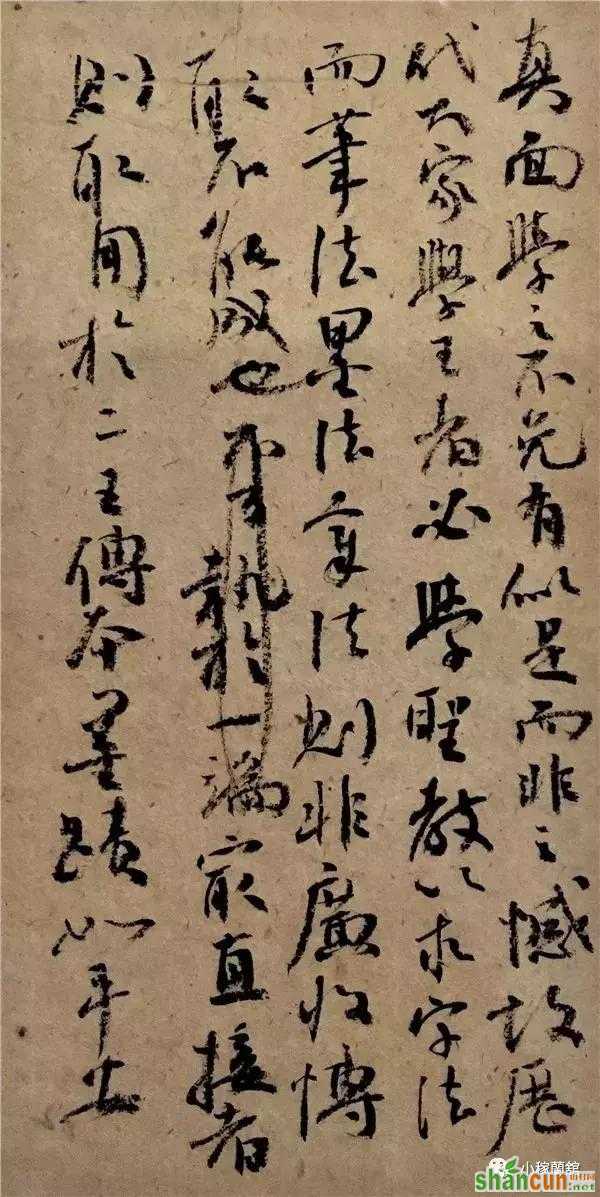 真面學之不免有似是而非之憾故歷
代大家學王者必學聖教以求字法
而筆法墨法章法則非廣收博
取不能成也 執於一端 最直接者
則取用於二王傳本墨蹟如平安
小稼蘭館
shancun
山村网
.net